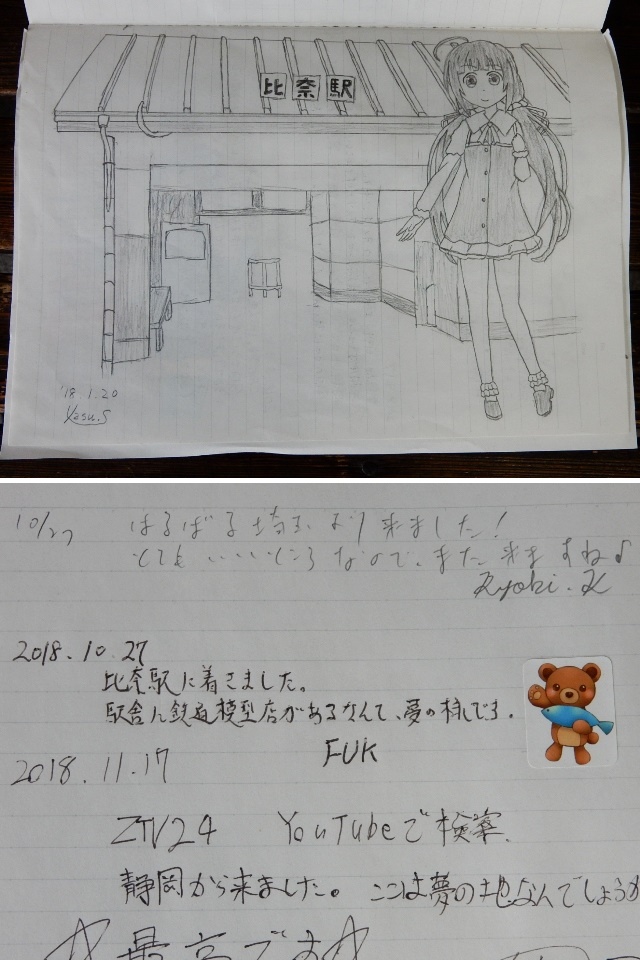 比奈駅
'18.1.20
Yasu.S
10/27 はるばる埼玉より来ました!
とてもいいところなので、また来ますね♪
Ryoki.K
2018.10.27
比奈駅に着きました。
駅舎に鉄道模型店があるなんて、夢の様です。
FUK
2018.11.17
ZTV24 YouTubeで検索
静岡から来ました。ここは夢の地なんでしょうか
最高です